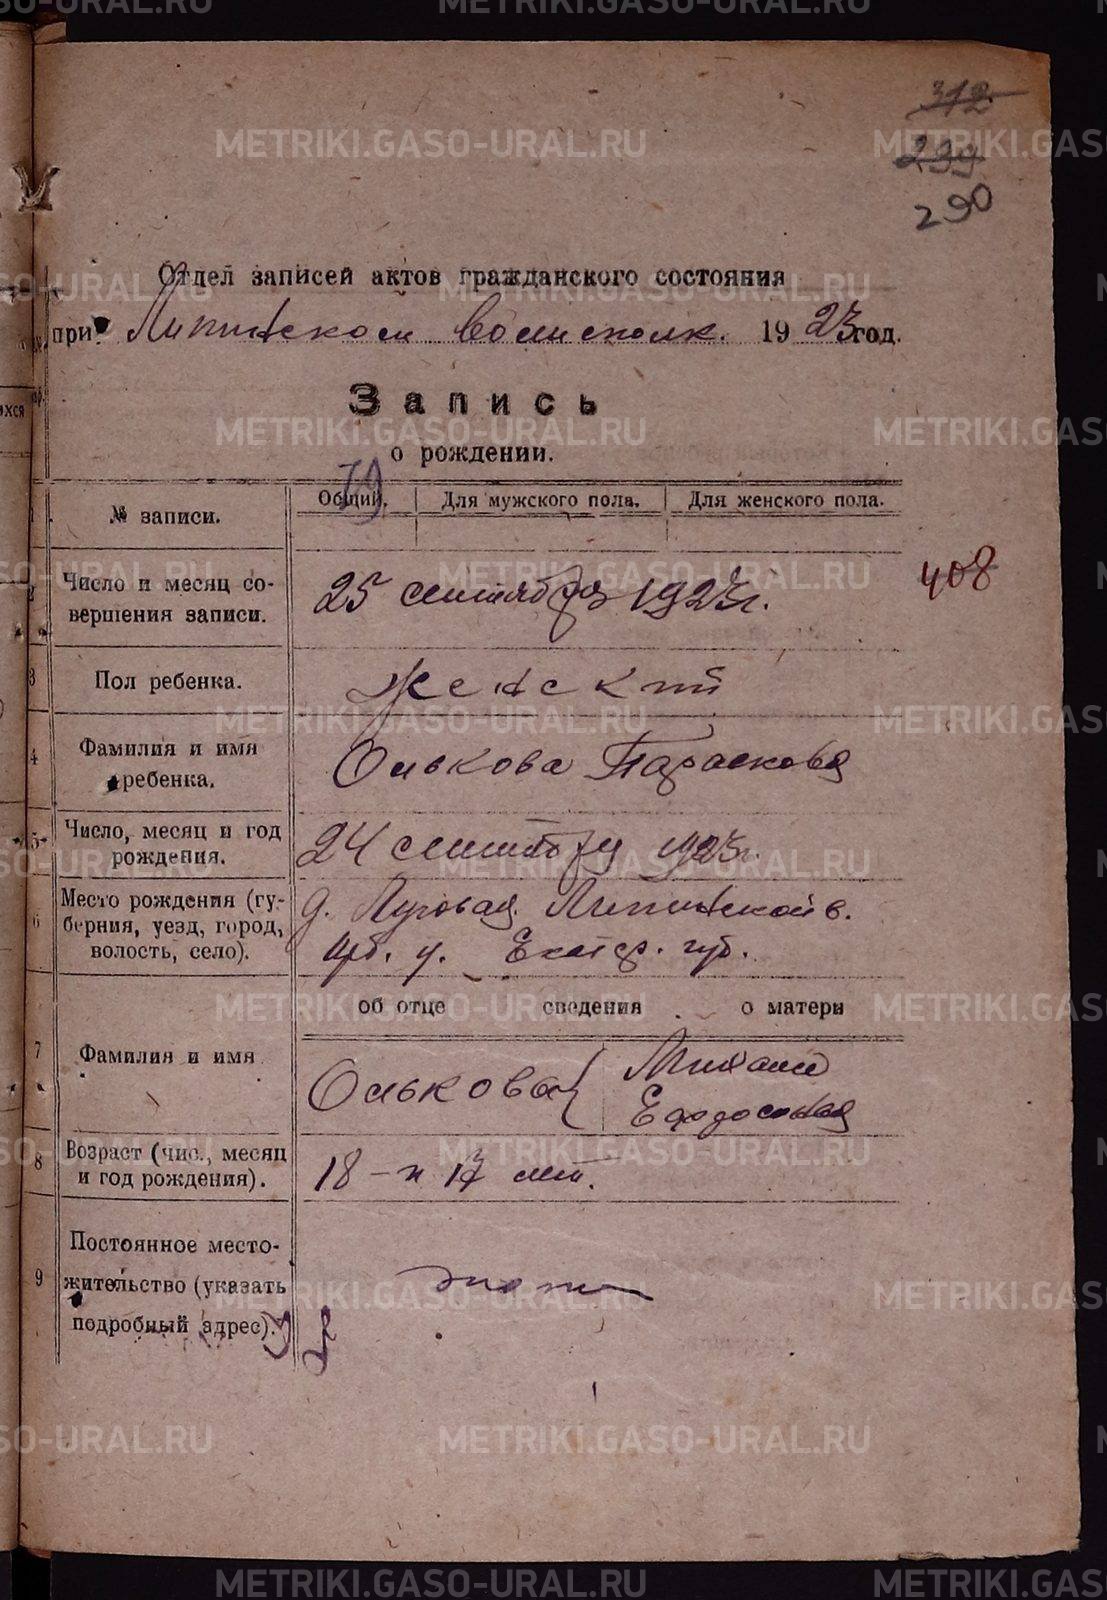 312
299
290
Отдел записей актов гражданского состояния
при Липинском волисполк. 1923 год.
Запись
о рождении.
79
№ записи.
Общий. Для мужского пола. Для женского пола.
2 Число и месяц совершения записи.
25 сентября 1923 г.
408
3 Пол ребенка.
женский
4 Фамилия и имя ребенка.
Олькова Парасковья
5 Число, месяц и год рождения.
24 сентября 1923 г.
6 Место рождения (губерния, уезд, город, волость, село).
д. Луговая Липинской в.
Ирб. у. Екатер. губ.
об отце сведения о матери
7 Фамилия и имя
Олькова
Михаил
Ефросинья
8 Возраст (чис., месяц и год рождения).
18 - и 17 лет.
9 Постоянное местожительство (указать подробный адрес).
METRIKI.GASO-URAL.RU